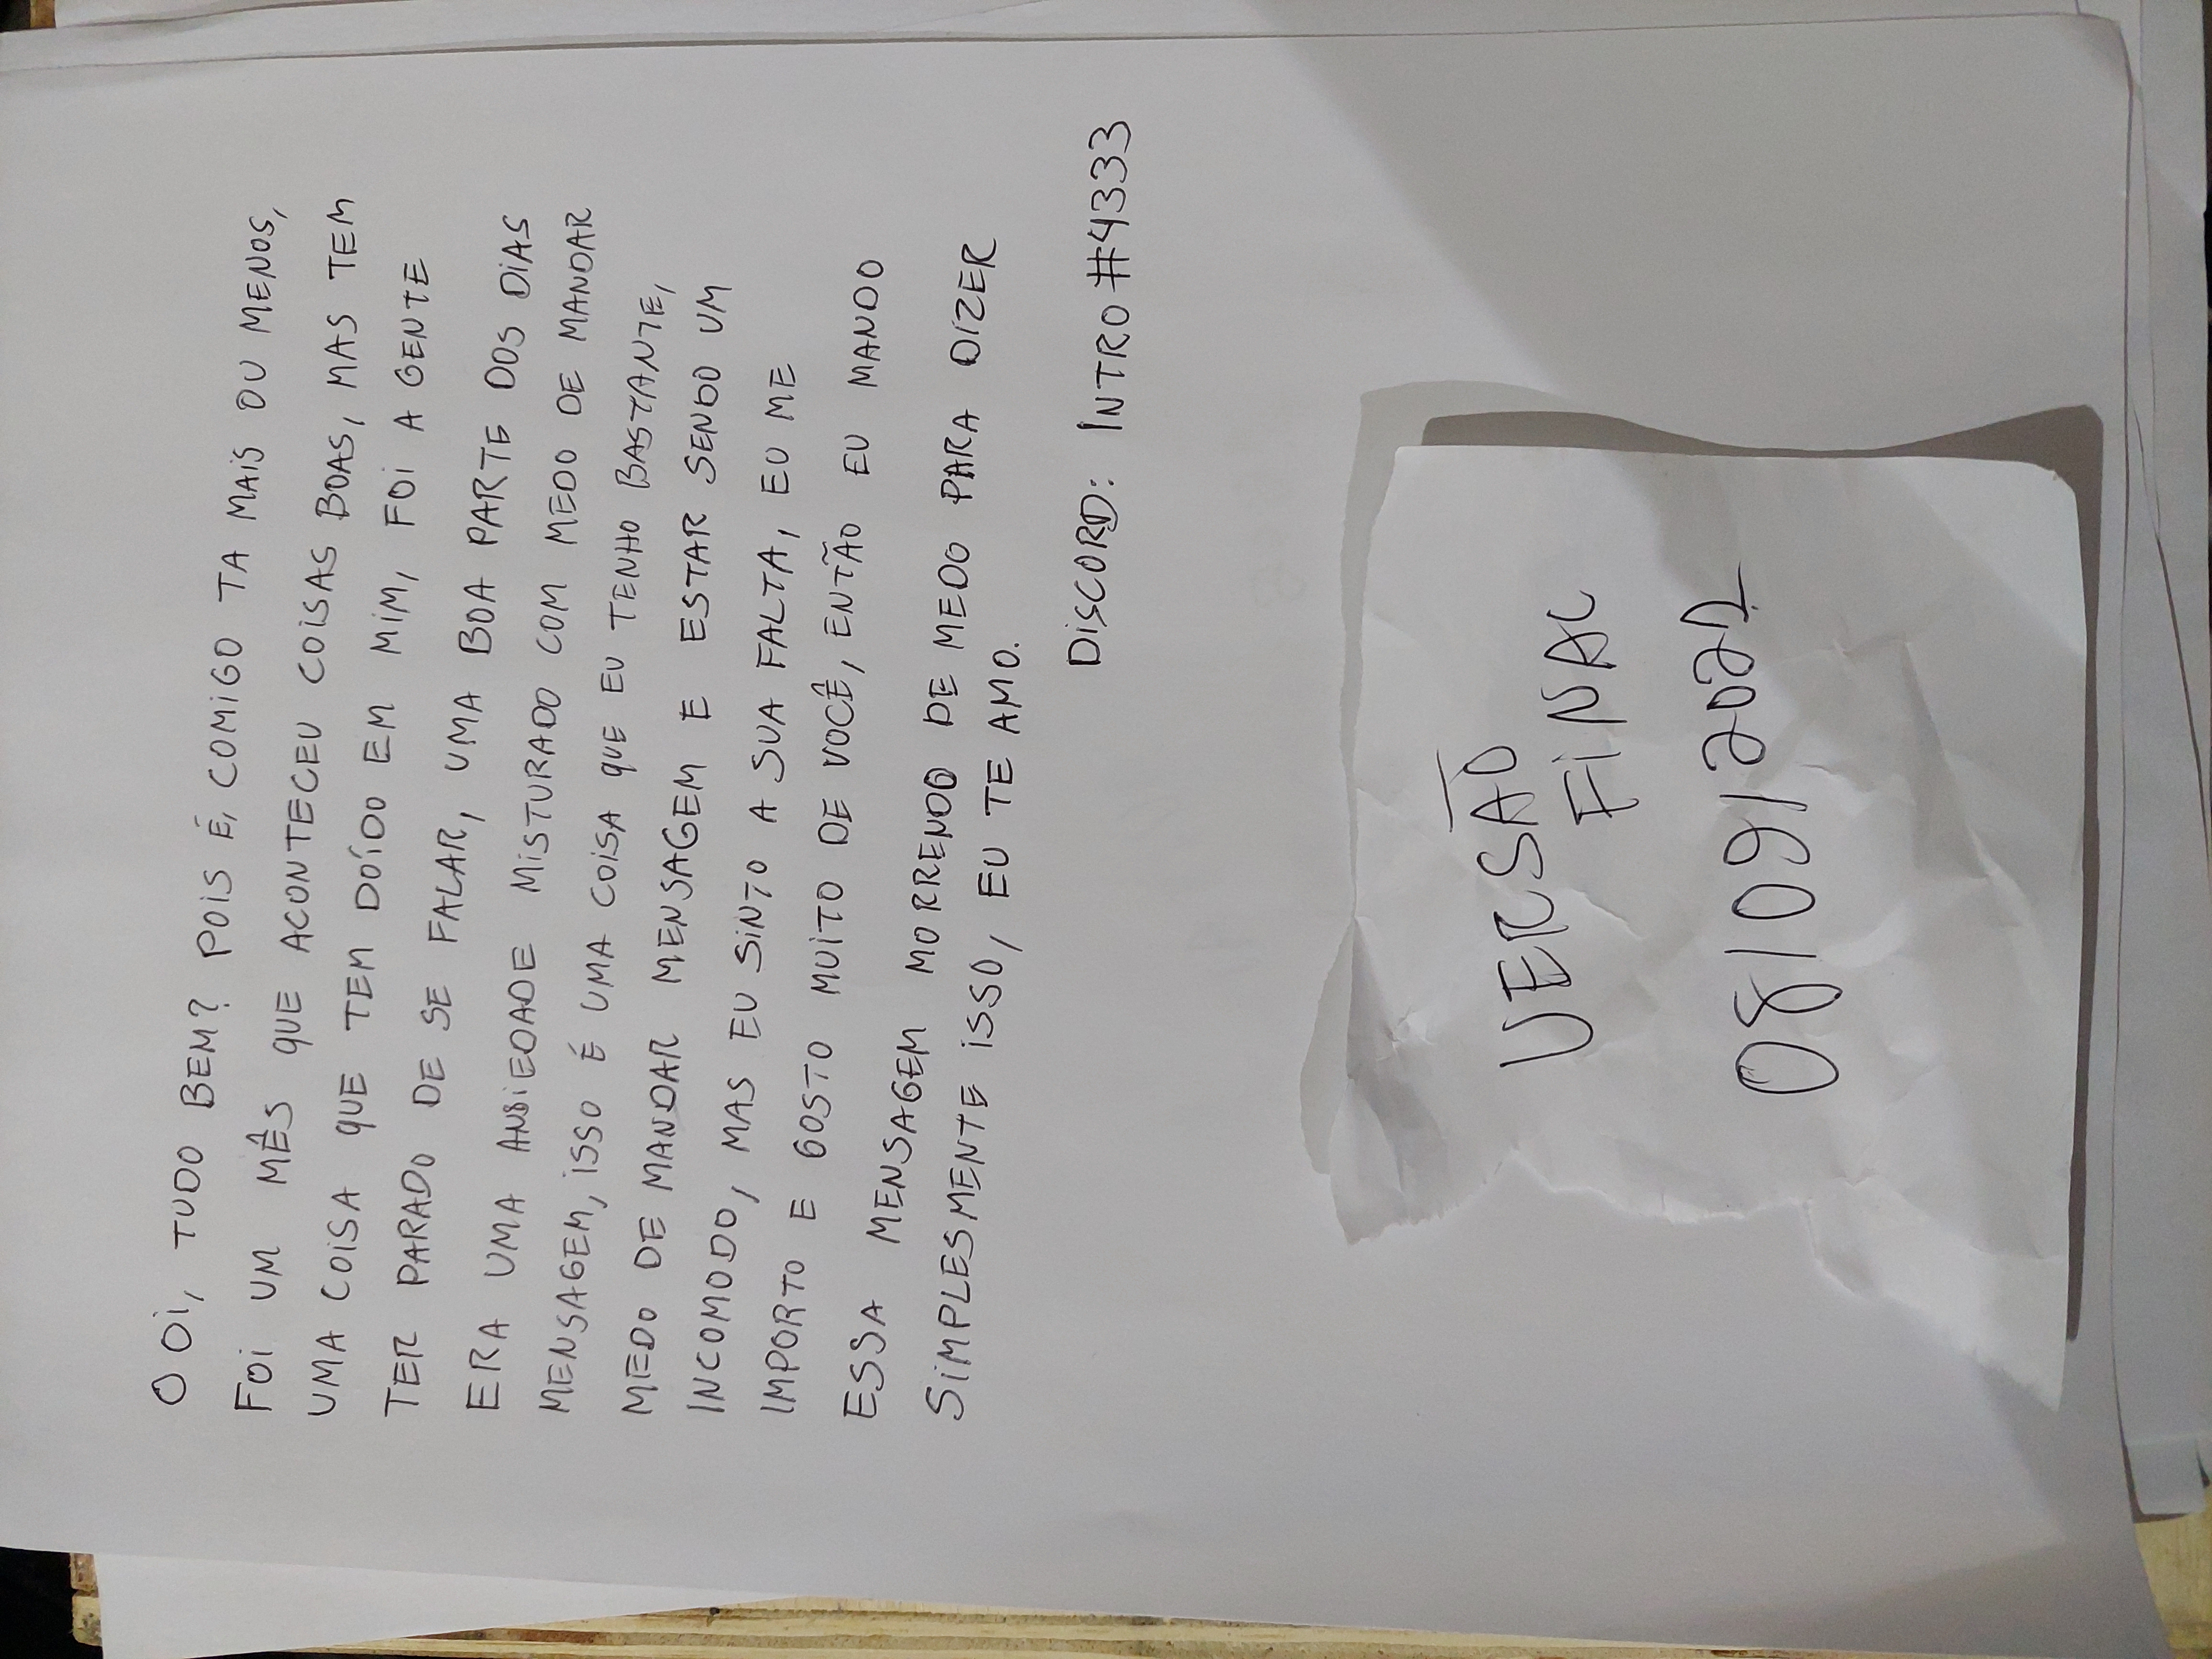 O OI, TUDO BEM? POIS É, COMIGO TA MAIS OU MENOS,
FOI UM MÊS QUE ACONTECEU COISAS BOAS, MAS TEM
UMA COISA QUE TEM DOÍDO EM MIM, FOI A GENTE
TER PARADO DE SE FALAR, UMA BOA PARTE DOS DIAS
ERA UMA ANSIEDADE MISTURADO COM MEDO DE MANDAR
MENSAGEM, ISSO É UMA COISA QUE EU TENHO BASTANTE,
MEDO DE MANDAR MENSAGEM E ESTAR SENDO UM
INCOMODO, MAS EU SINTO A SUA FALTA, EU ME
IMPORTO E GOSTO MUITO DE VOCÊ, ENTÃO EU MANDO
ESSA MENSAGEM MORRENDO DE MEDO PARA DIZER
SIMPLESMENTE ISSO, EU TE AMO.
DISCORD: INTRO#4333
VERSÃO
FINAL
08/09/2021